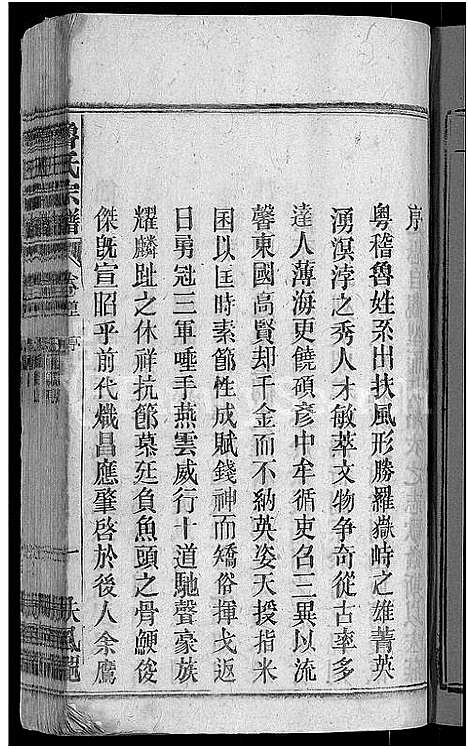 序
粵稽魯姓系出扶風形勝羅嶽峙之雄菁英
湧溟浡之秀人才敏萃文物争奇從古率多
達人薄海更饒碩彦中牟循吏召三異以流
馨東國高賢却千金而不納英姿天授指米
囷以匡時素節性成賦錢神而矯俗揮戈返
日勇冠三軍唾手燕雲威行十道馳聲豪族
耀麟趾之休祥抗節慕廷負魚頭之骨鯁俊
傑旣宣昭乎前代熾昌應肇啓於後人余鷹
魯氏宗譜 序 一 扶風